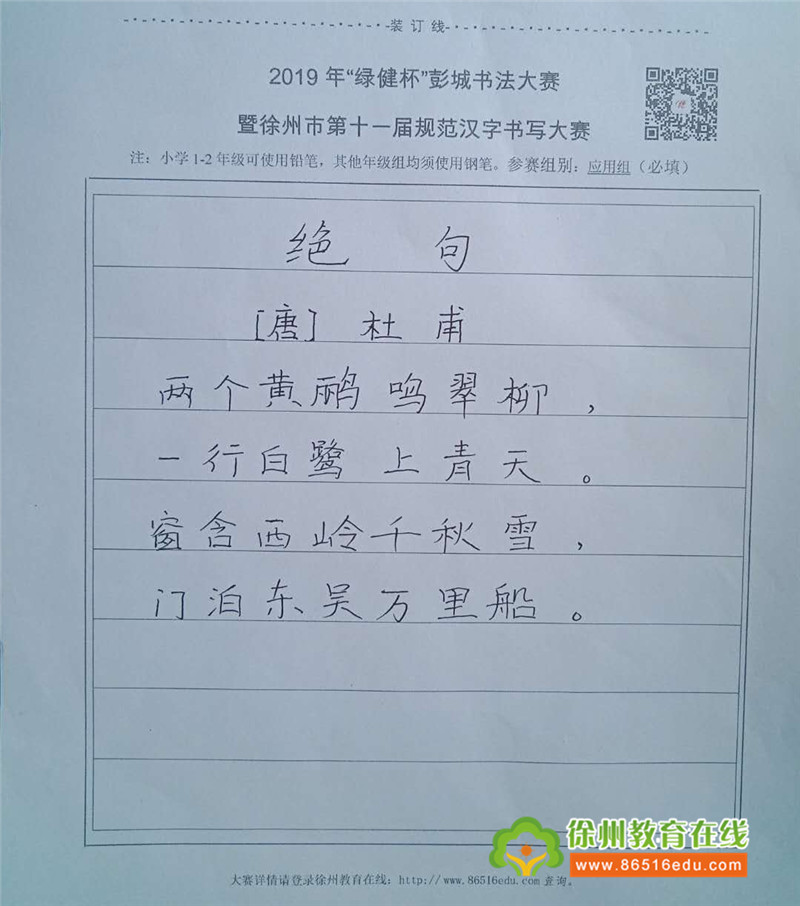 装 订 线
2019 年“绿健杯”彭城书法大赛
暨徐州市第十一届规范汉字书写大赛
注：小学 1-2 年级可使用铅笔，其他年级组均须使用钢笔。参赛组别：应用组（必填）
绝 句
[唐] 杜 甫
两个黄鹂鸣翠柳，
一行白鹭上青天。
窗含西岭千秋雪，
门泊东吴万里船。
徐州教育在线
www.86516edu.com
大赛详情请登录徐州教育在线：http://www.86516edu.com 查询。